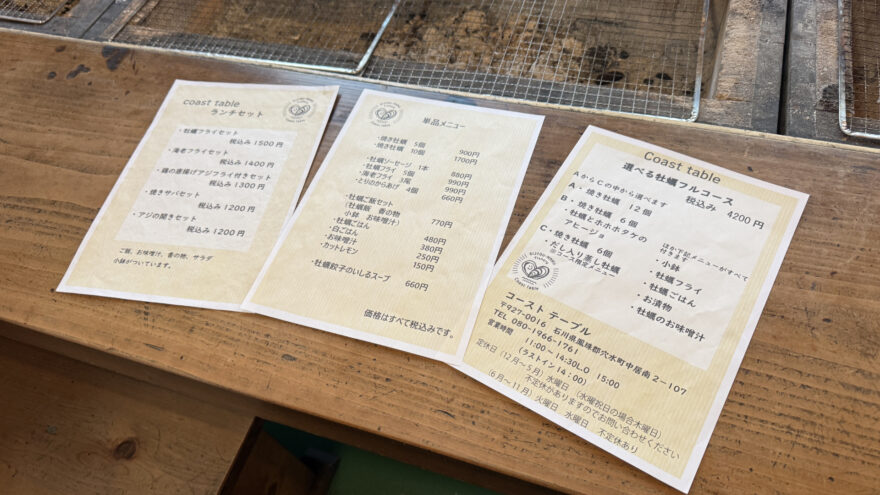 coast table
ランチセット
・牡蠣フライセット
税込み 1500円
・海老フライセット
税込み 1400円
・鶏の唐揚げアジフライ付きセット
税込み 1300円
・焼きサバセット
税込み 1200円
・アジの開きセット
税込み 1200円
ご飯、お味噌汁、香の物、サラダ
小鉢がついています。
単品メニュー
・焼き牡蠣 5個 900円
・焼き牡蠣 10個 1700円
・牡蠣ソーセージ 1本 880円
・牡蠣フライ 5個 990円
・海老フライ 3尾 990円
・とりのからあげ 4個 660円
・牡蠣ご飯セット
(牡蠣飯 香の物
小鉢 お味噌汁) 770円
・牡蠣ごはん 480円
・白ごはん 380円
・お味噌汁 250円
・カットレモン 150円
・牡蠣餃子のいしるスープ 660円
価格はすべて税込みです。
Coast table
選べる牡蠣フルコース
税込み 4200円
AからCの中から選べます
A・焼き牡蠣 12個
B・焼き牡蠣 6個
・牡蠣とホホホタケの
アヒージョ
C・焼き牡蠣 6個
・だし入り蒸し牡蠣
※コース限定メニュー
ほか下記メニューがすべて
付きます
・小鉢
・牡蠣フライ
・牡蠣ごはん
・お漬物
・牡蠣のお味噌汁
Coast table
コースト テーブル
〒927-0016 石川県鳳珠郡穴水町中居南2-107
TEL 080-1966-1761
営業時間 11:00~14:30L.O 15:00
(ラストイン14:00)
定休日(12月~5月)水曜日 (水曜祝日の場合木曜日)
不定休がありますのでお問い合わせください
(6月~11月)火曜日 水曜日 不定休あり